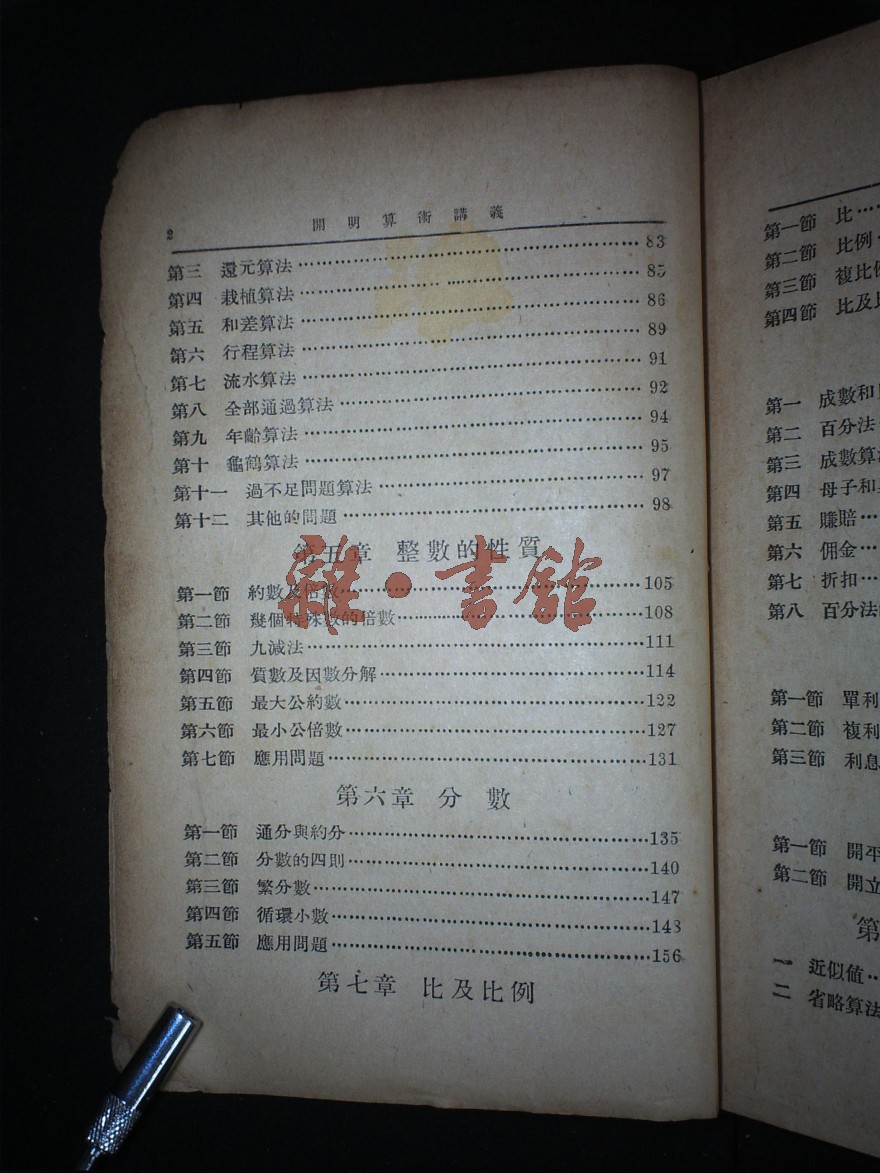 2 開明算術講義
第三 還元算法 83
第四 栽植算法 85
第五 和差算法 86
第六 行程算法 89
第七 流水算法 91
第八 全部通過算法 92
第九 年齡算法 94
第十 龜鶴算法 95
第十一 過不足問題算法 97
第十二 其他的問題 98
第五章 整數的性質
第一節 約數及倍數 105
第二節 幾個特殊數的倍數 108
第三節 九減法 111
第四節 質數及因數分解 114
第五節 最大公約數 122
第六節 最小公倍數 127
第七節 應用問題 131
第六章 分數
第一節 通分與約分 135
第二節 分數的四則 140
第三節 繁分數 147
第四節 循環小數 148
第五節 應用問題 156
第七章 比及比例
雜·書館
第一節 比
第二節 比例
第三節 複比例
第四節 比及比
第一 成數和
第二 百分法
第三 成數算
第四 母子和
第五 賺賠
第六 佣金
第七 折扣
第八 百分法
第一節 單利
第二節 複利
第三節 利息
第一節 開平
第二節 開立
第
一 近似值
二 省略算法